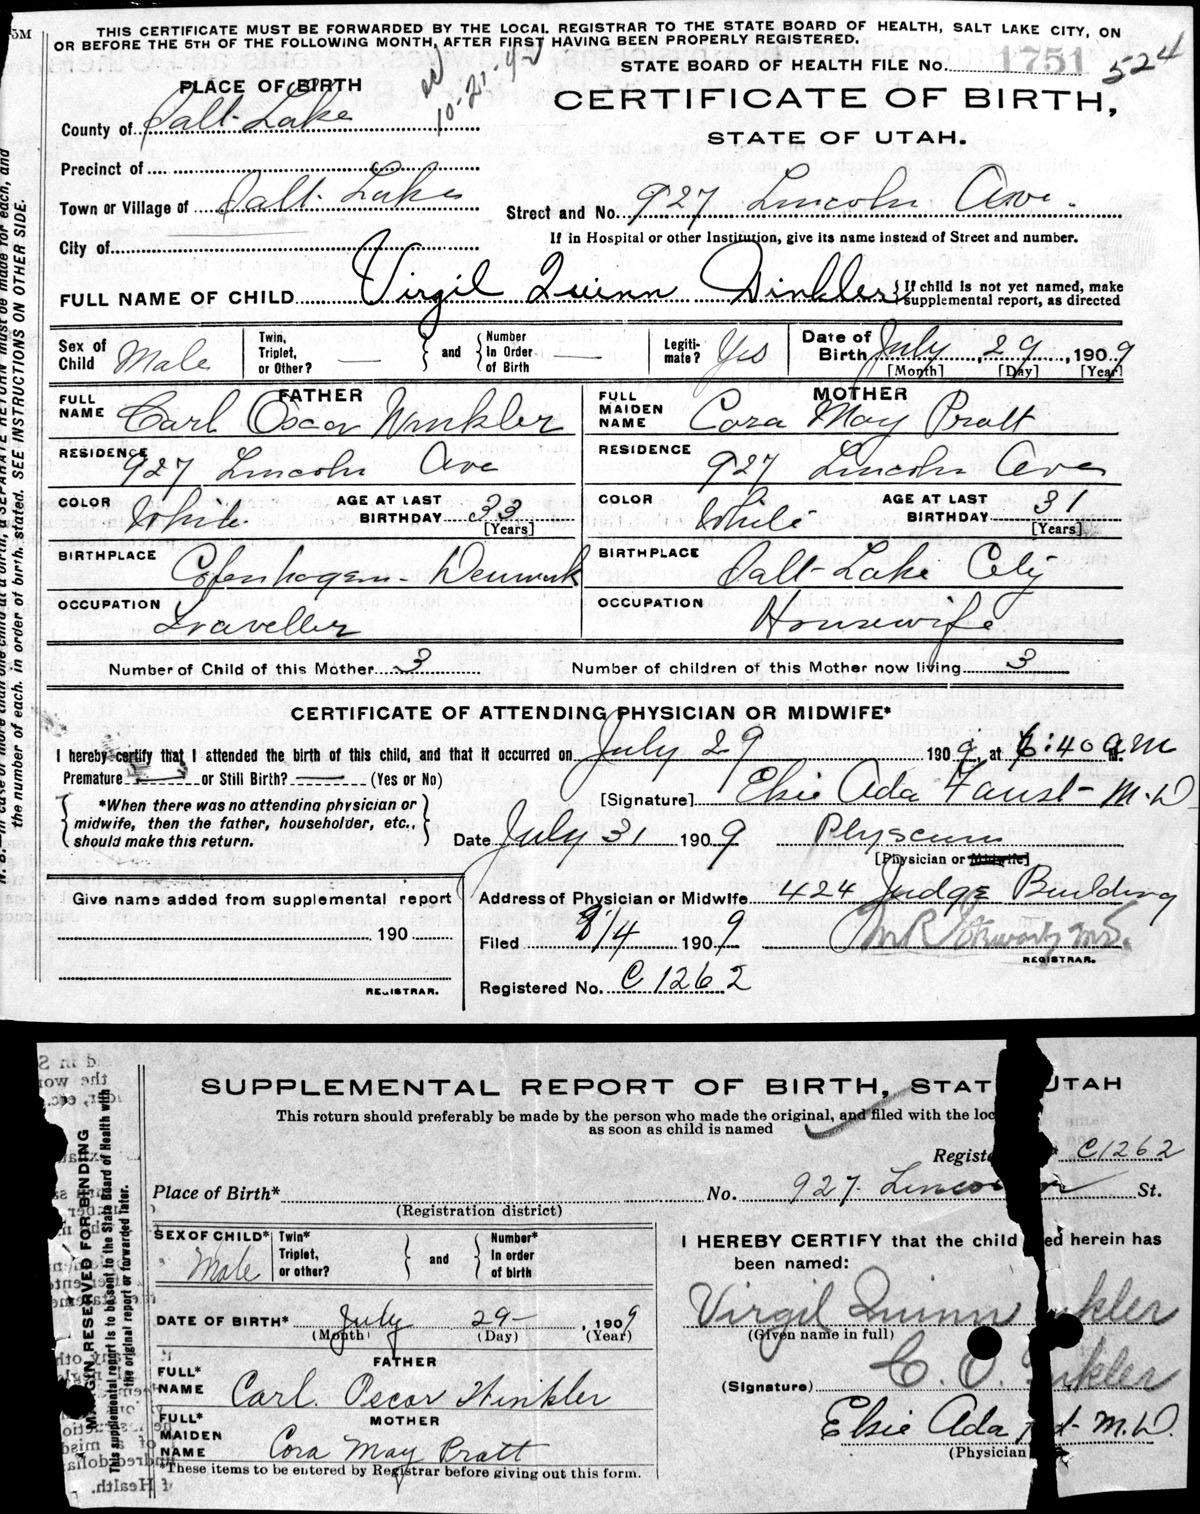 5M
THIS CERTIFICATE MUST BE FORWARDED BY THE LOCAL REGISTRAR TO THE STATE BOARD OF HEALTH, SALT LAKE CITY, ON
OR BEFORE THE 5TH OF THE FOLLOWING MONTH, AFTER FIRST HAVING BEEN PROPERLY REGISTERED.
STATE BOARD OF HEALTH FILE No. 1751 524
10-21-42
PLACE OF BIRTH
CERTIFICATE OF BIRTH,
STATE OF UTAH.
County of Salt Lake
Precinct of
Town or Village of Salt Lake
Street and No. 927 Lincoln Ave.
If in Hospital or other Institution, give its name instead of Street and number.
City of
FULL NAME OF CHILD Virgil Quinn Winkler
If child is not yet named, make
supplemental report, as directed
Sex of Child Male
Twin, Triplet, or Other? —
and
Number In Order of Birth —
Legitimate? Yes
Date of Birth July, 29, 1909
[Month] [Day] [Year]
FATHER
FULL NAME Carl Oscar Winkler
RESIDENCE 927 Lincoln Ave
COLOR White
AGE AT LAST BIRTHDAY 33
[Years]
BIRTHPLACE Copenhagen - Denmark
OCCUPATION Traveller
MOTHER
FULL MAIDEN NAME Cora May Pratt
RESIDENCE 927 Lincoln Ave
COLOR White
AGE AT LAST BIRTHDAY 31
[Years]
BIRTHPLACE Salt-Lake City
OCCUPATION Housewife
Number of Child of this Mother 3
Number of children of this Mother now living 3
CERTIFICATE OF ATTENDING PHYSICIAN OR MIDWIFE*
I hereby certify that I attended the birth of this child, and that it occurred on July 29 1909, at 6:40 a m M.
Premature — or Still Birth? — (Yes or No)
*When there was no attending physician or
midwife, then the father, householder, etc.,
should make this return.
[Signature] Elsie Ada Faust- M.D
Date July 31 1909
[Physician or Midwife]
Address of Physician or Midwife 424 Judge Building
Give name added from supplemental report
190
REGISTRAR.
Filed 8/4 1909
REGISTRAR.
Registered No. C1262
N. B.—In case of more than one child at a birth, a SEPARATE RETURN must be made for each, and
the number of each, in order of birth, stated. SEE INSTRUCTIONS ON OTHER SIDE.
SUPPLEMENTAL REPORT OF BIRTH, STAT UTAH
This return should preferably be made by the person who made the original, and filed with the loc
as soon as child is named
Registe C1262
Place of Birth*
(Registration district)
No. 927 Lincoln St.
SEX OF CHILD* Male
Twin* Triplet, or other?
and
Number* In order of birth
I HEREBY CERTIFY that the child ed herein has
been named:
Virgil Quinn nkler
(Given name in full)
DATE OF BIRTH* July 29- , 1909
(Month) (Day) (Year)
FATHER
FULL* NAME Carl Oscar Winkler
(Signature) C. O. nkler
MOTHER
FULL* MAIDEN NAME Cora May Pratt
Elsie Ada st- M.D.
(Physician
*These items to be entered by Registrar before giving out this form.
MARGIN RESERVED FOR BINDING
This supplemental report is to be sent to the State Board of Health with
the original report or forwarded later.